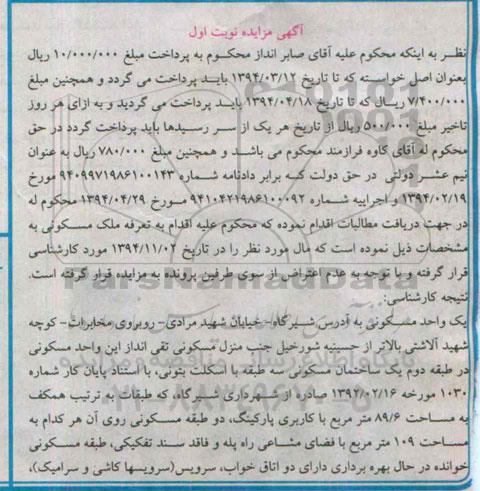 آگهی مزایده نوبت اول
نظر به اینکه محکوم علیه آقای صابر انداز محکوم به پرداخت مبلغ ۱۰/۰۰۰/۰۰۰ ریال
بعنوان اصل خواسته که تا تاریخ ۱۳۹۴/۰۳/۱۲ باید پرداخت می گردد و همچنین مبلغ
۷/۴۰۰/۰۰۰ ریال که تا تاریخ ۱۳۹۴/۰۴/۱۸ باید پرداخت می گردید و به ازای هر روز
تاخیر مبلغ ۵۰۰/۰۰۰ ریال از تاریخ هر یک از سر رسیدها باید پرداخت گردد در حق
محکوم له آقای کاوه فرازمند محکوم می باشد و همچنین مبلغ ۷۸۰/۰۰۰ ریال به عنوان
نیم عشر دولتی در حق دولت که برابر دادنامه شماره ۹۴۰۹۹۷۱۹۸۶۱۰۰۱۴۳ مورخ
۱۳۹۴/۰۲/۱۹ و اجراییه شماره ۹۴۱۰۴۲۱۹۸۶۱۰۰۰۹۲ مورخ ۱۳۹۴/۰۴/۲۹ محکوم له
در جهت دریافت مطالبات اقدام نموده که محکوم علیه اقدام به تعرفه ملک مسکونی به
مشخصات ذیل نموده است که مال مورد نظر را در تاریخ ۱۳۹۴/۱۱/۰۲ مورد کارشناسی
قرار گرفته و با توجه به عدم اعتراض از سوی طرفین پرونده به مزایده قرار گرفته است.
نتیجه کارشناسی:
یک واحد مسکونی به آدرس شیرگاه-خیابان شهید مرادی- روبروی مخابرات- کوچه
شهید آلاشتی بالاتر از حسینیه شورخیل جنب منزل مسکونی تقی انداز این واحد مسکونی
در طبقه دوم یک ساختمان مسکونی سه طبقه با اسکلت بتونی، با استناد پایان کار شماره
۱۰۳۰ مورخه ۱۳۹۲/۰۲/۱۶ صادره از شهرداری شیرگاه، که طبقات به ترتیب همکف
به مساحت ۸۹/۶ متر مربع با کاربری پارکینگ، دو طبقه مسکونی روی آن هر کدام به
مساحت ۱۰۹ متر مربع با فضای مشاعی راه پله و فاقد سند تفکیکی، طبقه مسکونی
خوانده در حال بهره برداری دارای دو اتاق خواب، سرویس(سرویسها کاشی و سرامیک)،
ParsNamadData
پایگاه اطلاع رسانی مناقصه و مزایده